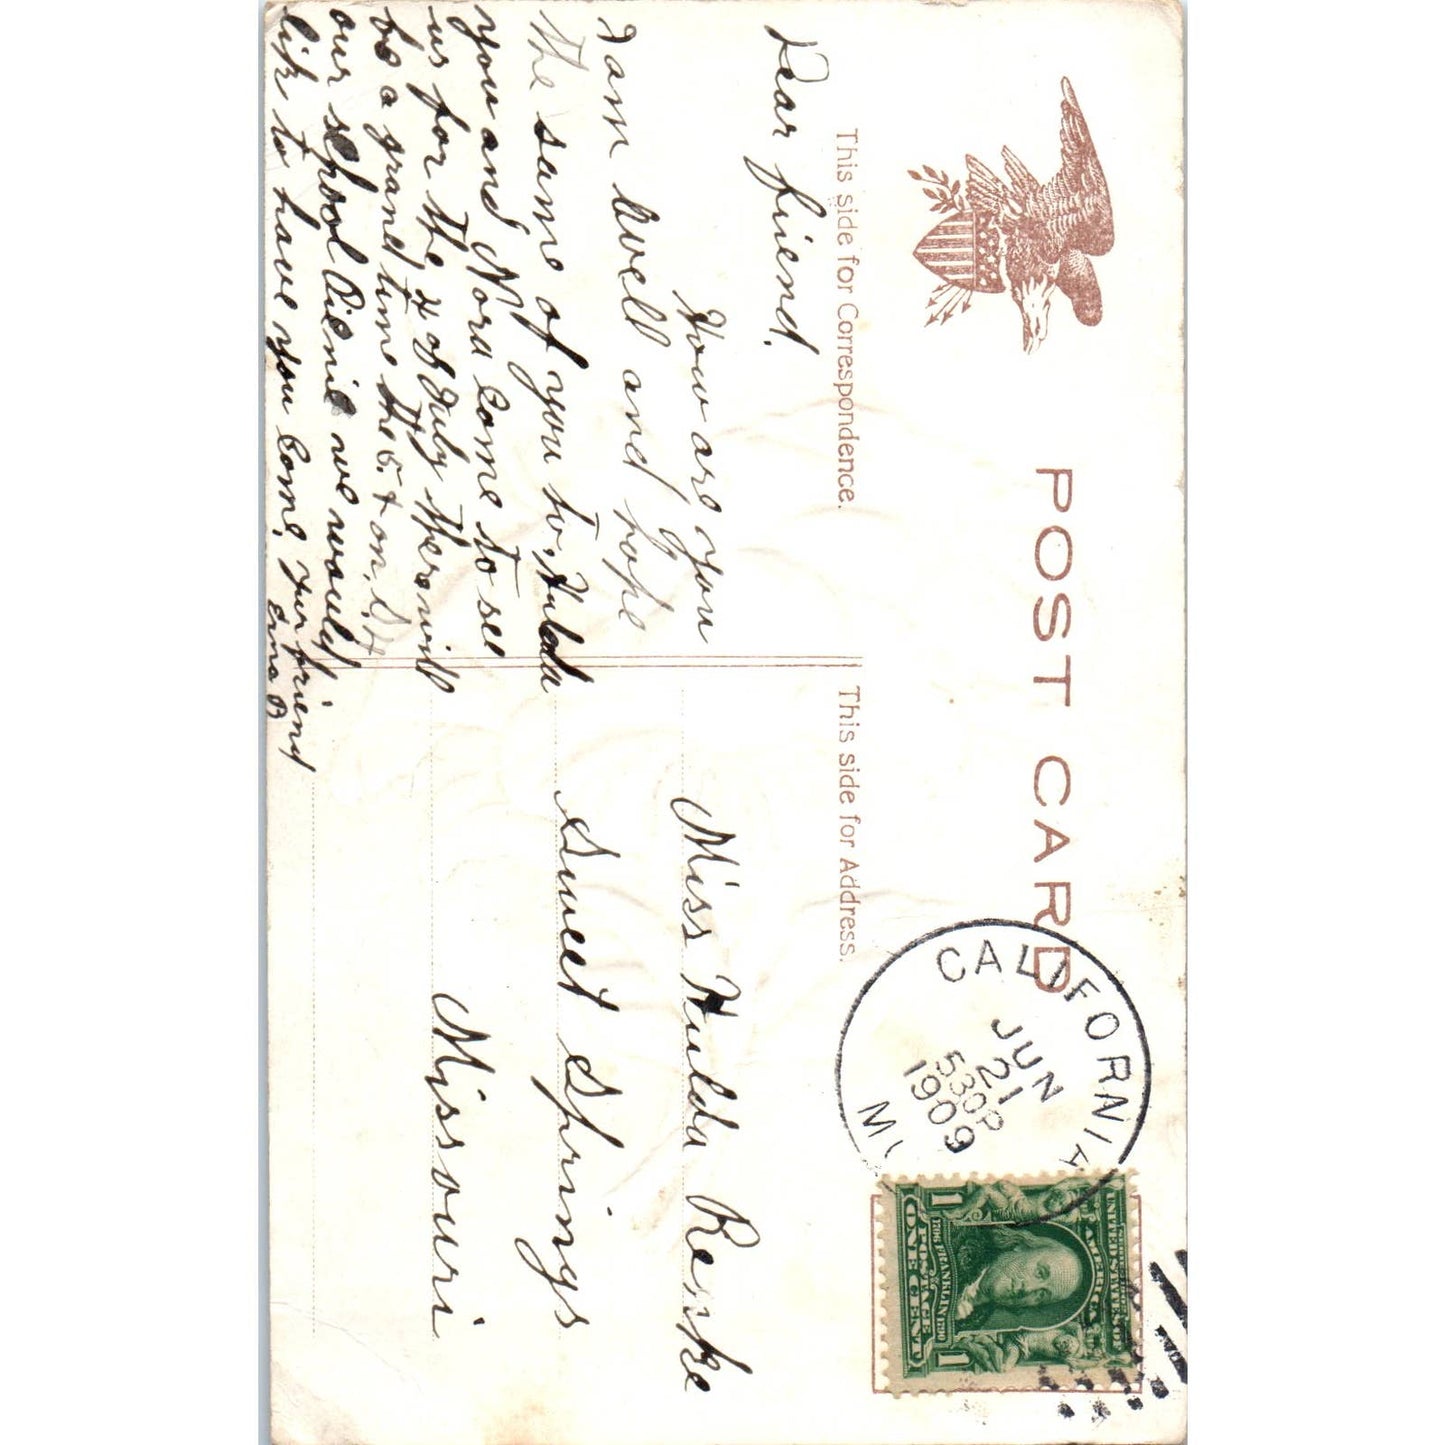 POST CARD
This side for Correspondence.
This side for Address.
CALIFORNIA
JUN
21
530P
1909
UNITED STATES OF
AMERICA
1706 FRANKLIN 1790
POSTAGE
1 ONE CENT 1
Dear friend.
How are you
I am well and hope
the same of you to, Hulda
you and Nora Come to see
us for the 4 of July there will
be a grand time the 5. t on. it
our school Picnic we would
like to have you Come. Yur friend
Erna B
Miss Hulda Ranke
Sweet Springs
Missouri